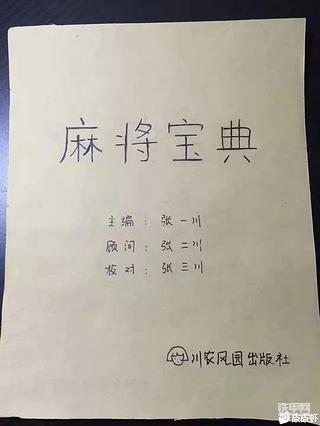 麻将宝典
主编：张一川
顾问：张二川
核对：张三川
川农风园出版社
铁甲网
皮皮虾